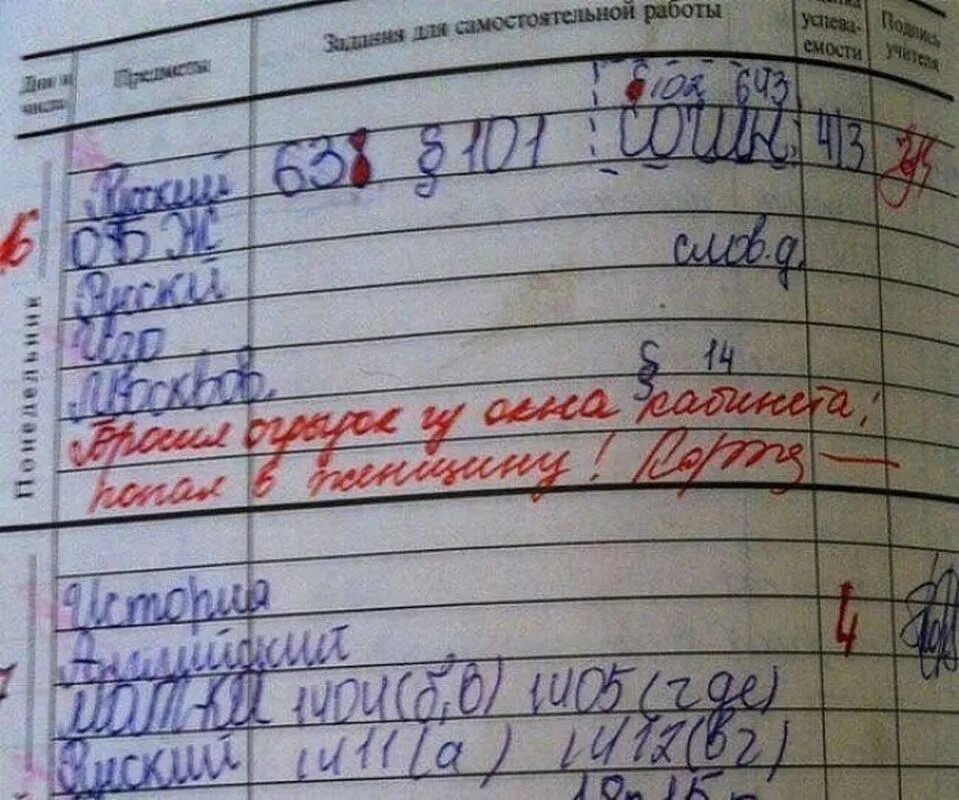 Дни и числа Предметы Задания для самостоятельной работы успева-емости Подпись учителя
§102 643
Русский 638 § 101 сочин. 4/3
16
Понедельник
ОБЖ
слов.д.
Русский
Изо
Москвов. § 14
Бросил огрызок из окна кабинета,
попал в женщину!
История
Английский 4
мат-ка 1404(б,в) 1405(где)
Руский 1411(а) 1412(вг)
7